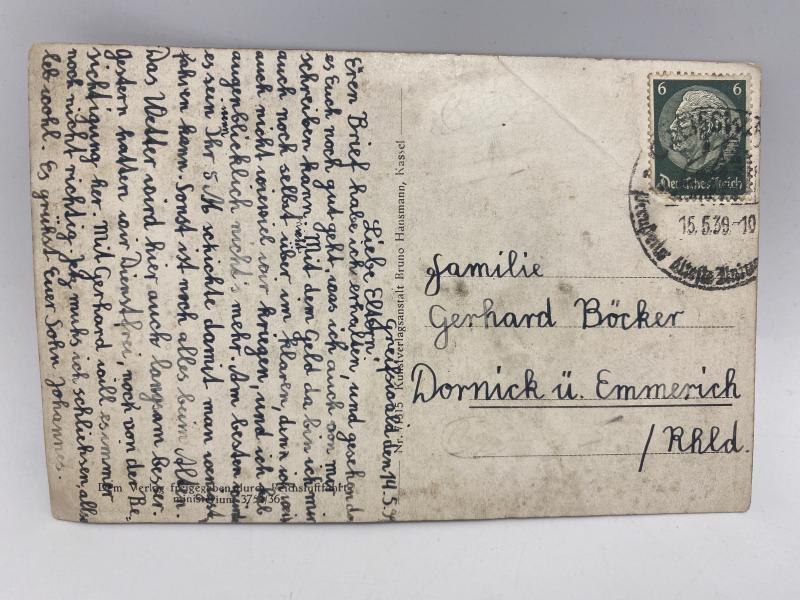 Greifswald den 14.5.39
Liebe Eltern!
Euren Brief habe ich erhalten, und gesehen das
es Euch noch gut geht, was ich auch von mir
schreiben kann. Mit dem Geld da bin ich mir
auch noch selbst nicht über im klaren, denn ich weis
auch nicht wieviel wir kriegen, und ich hab
augenblicklich nichts mehr. Am besten würde
es sein Ihr 5 M schickte damit man wenigst.
fahren kann. Sonst ist noch alles beim Alten.
Das Wetter wird hier auch langsam besser.
Gestern hatten wir Dienstfrei, noch von der Be-
sichtigung her. Mit Gerhard will es immer
noch nicht richtig. Jetz muhs ich schliehsen, also
leb wohl. Es grühst Euer Sohn Johannes.
Vom Verlag freigegeben durch Reichsluftfahrt-
ministerium 375 /36
Nr. 7/615 Kunstverlagsanstalt Bruno Hansmann, Kassel
6 6
Deutsches Reich
15.5.39-10
Preußens älteste
Familie
Gerhard Böcker
Dornick ü. Emmerich
/Rhld.